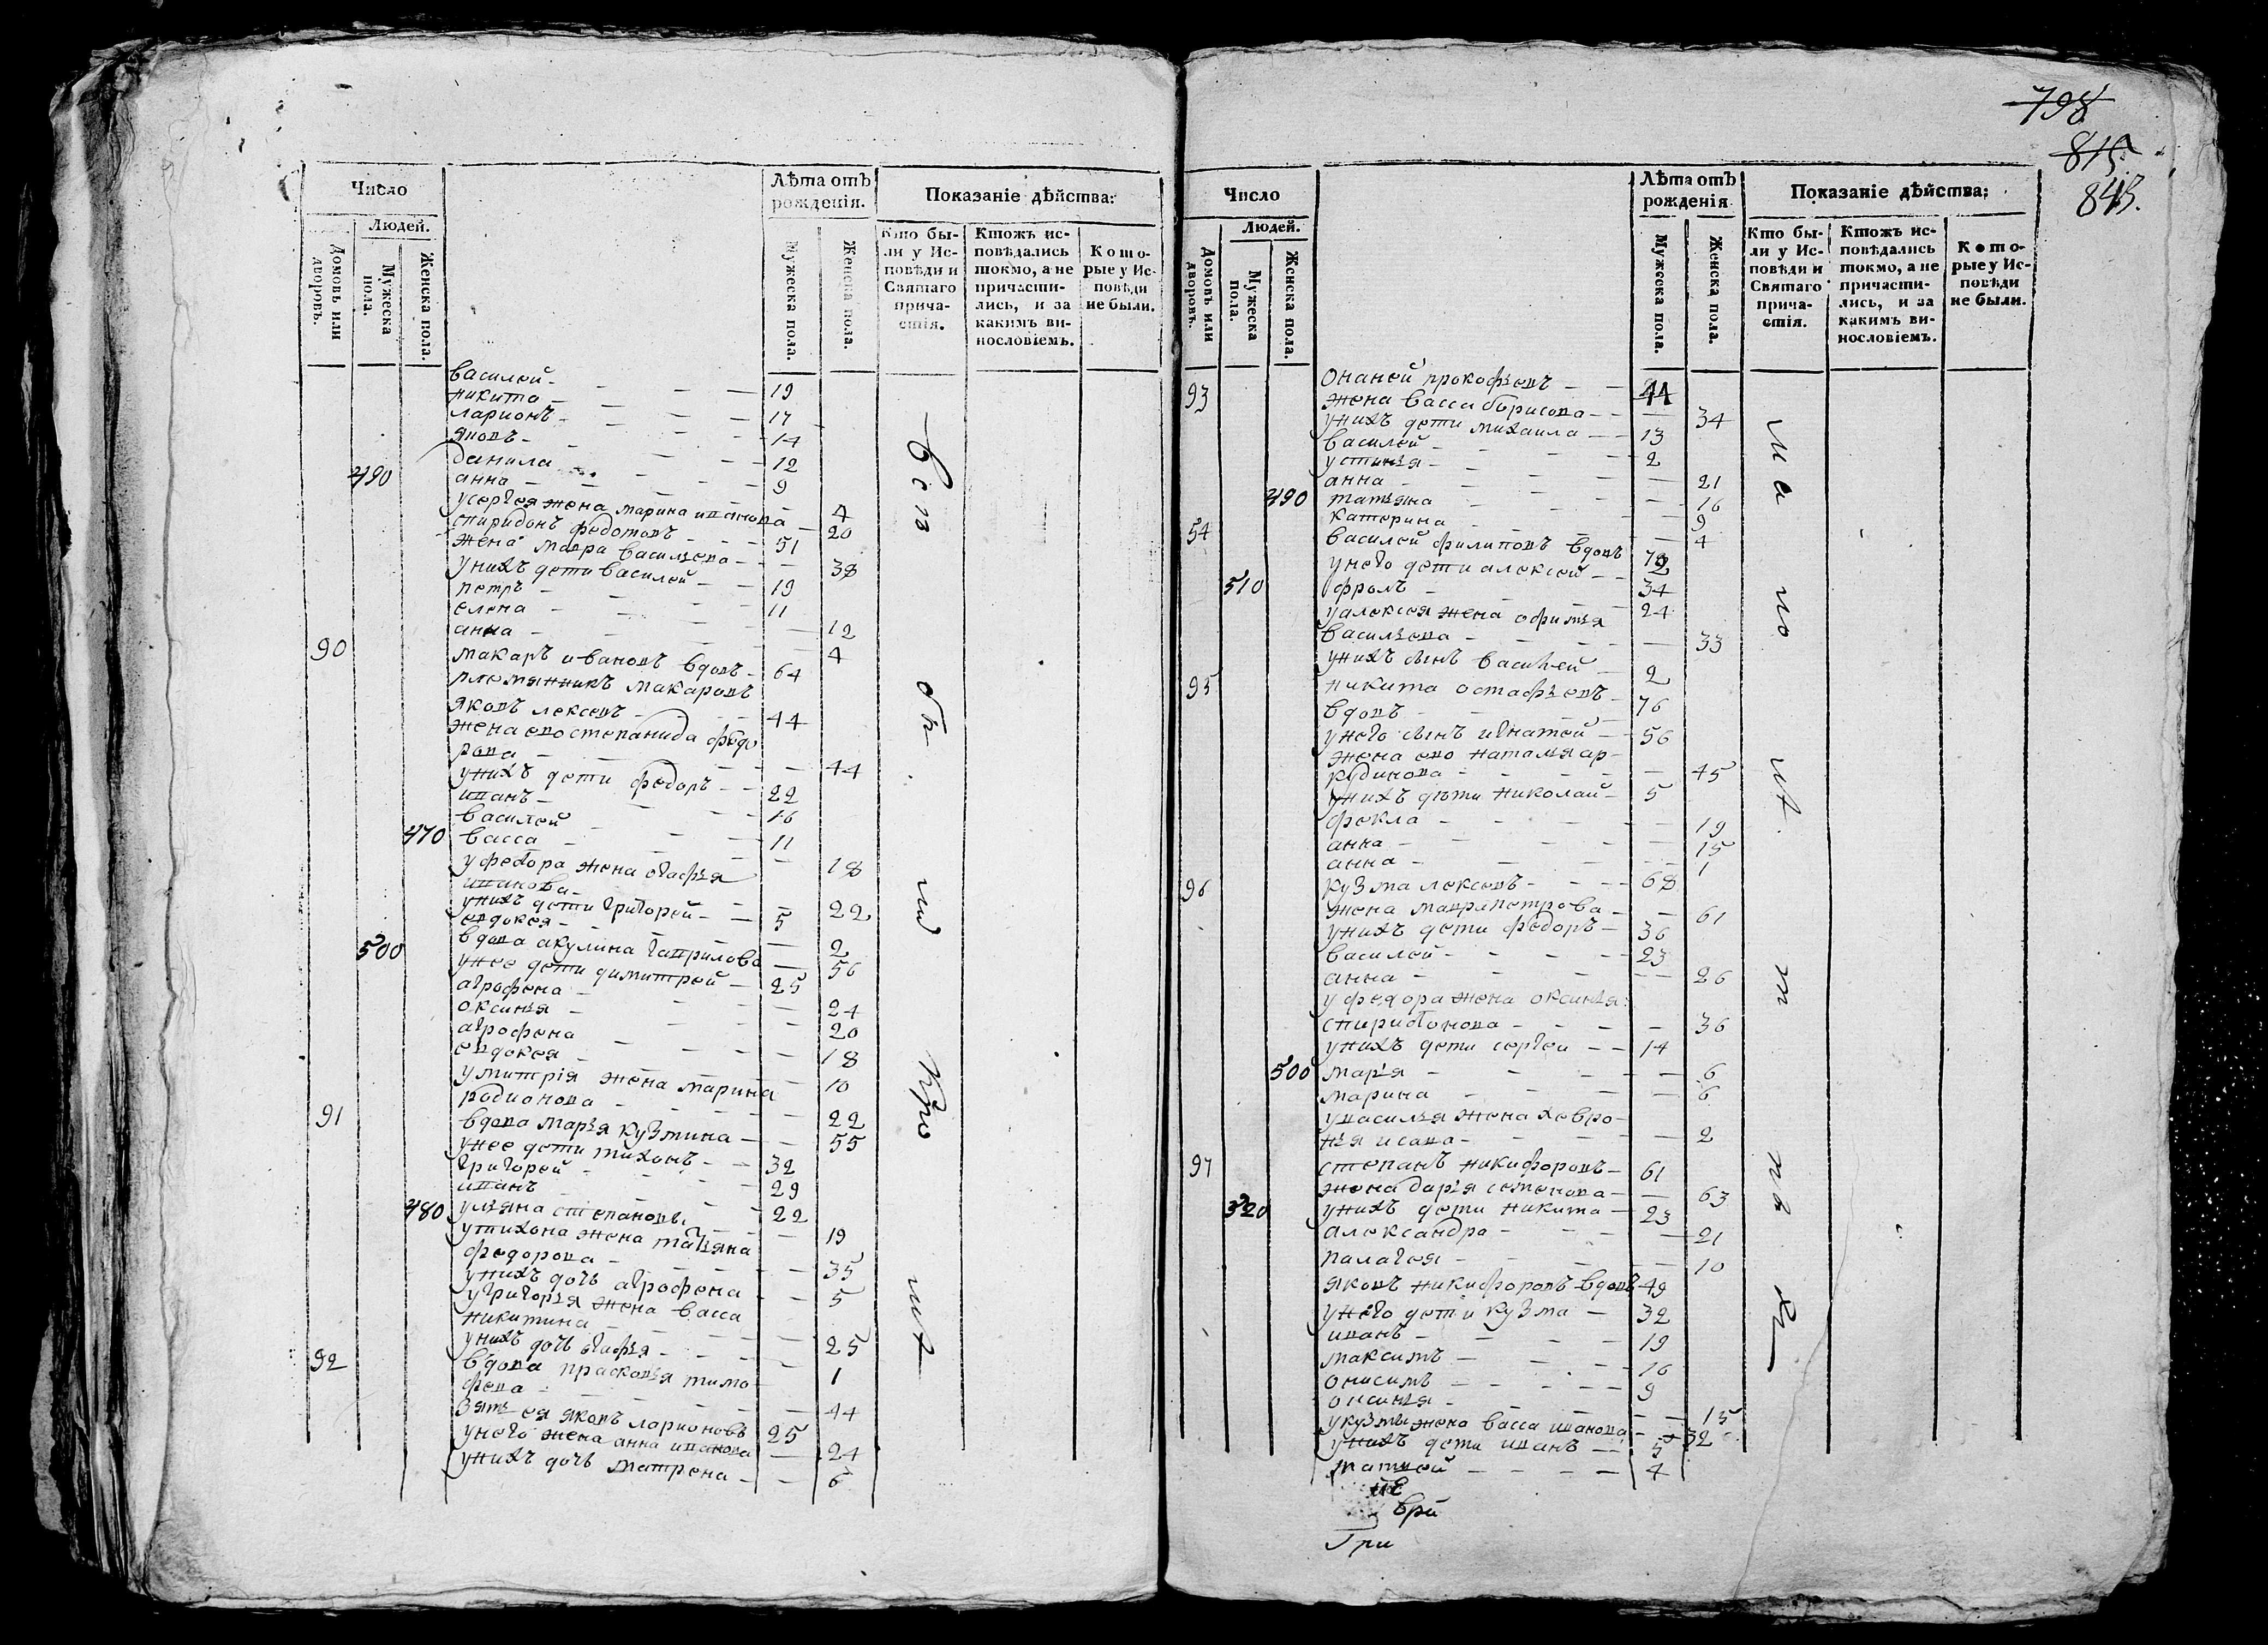 798
815
843.
Число
Людей.
Домовъ или дворовъ.
Мужеска пола.
Женска пола.
Лѣта отъ рожденія.
Мужеска пола.
Женска пола.
Показаніе дѣйства:
Кто были у Исповѣди и Святаго причастія.
Ктожъ исповѣдались токмо, а не причастились, и за какимъ винословіемъ.
Которые у Исповѣди не были.
василей 19
никита 17
ларионъ 14
яковъ 12
данила 9
490 анна 4
усергея жена марина иванова 20
спиридонъ федотовъ 51
жена мавра васильева 38
унихъ дети василей 19
петръ 11
елена 12
анна 4
90 макаръ ивановъ вдовъ 64
племянникъ макаровъ
яковъ лексевъ 44
жена ево степанида федо
рова 44
унихъ дети федоръ 22
иванъ 16
василей 11
470 васса 18
уфедора жена агафья
иванова 22
унихъ дети григорей 5
евдокея 2
500 вдова акулина гаврилова 56
унее дети димитрей 25
аграфена 24
оксинья 20
аграфена 18
евдокея 10
умитрія жена марина
родионова 22
91 вдова марья кузмина 55
унее дети тихонъ 32
григорей 29
иванъ 22
480 ульяна степанова 19
утихона жена татьяна
федорова 35
унихъ дочь аграфена 5
угригорья жена васса
никитина 25
унихъ дочь агафья 1
92 вдова прасковья тимо
фева 44
зять ея яковъ ларионовъ 25
унего жена анна иванова 24
унихъ дочь матрена 6
Число
Людей.
Домовъ или дворовъ.
Мужеска пола.
Женска пола.
Лѣта отъ рожденія
Мужеска пола.
Женска пола.
Показаніе дѣйства:
Кто были у Исповѣди и Святаго причастія.
Ктожъ исповѣдались токмо, а не причастились, и за какимъ винословіемъ.
Которые у Исповѣди не были.
93 онаней прокофьевъ 44
жена васса борисова 34
унихъ дети михаила 13
василей 2
устинья 21
анна 16
490 татьяна 9
катерина 4
54 василей филиповъ вдовъ
унего дети алексей 34
510 фролъ 24
уалексея жена офимья
васильева 33
унихъ сынъ василей 2
95 никита остафьевъ
вдовъ 76
унего сынъ игнатей 56
жена ево наталья ар
рудинова 45
унихъ дѣти николай 5
фекла 19
анна 15
анна 1
96 кузма лексевъ 68
жена мавра петрова 61
унихъ дети федоръ 36
василей 23
анна 26
уфедора жена оксинья
спиридонова 36
унихъ дети сергеи 14
500 марья 6
марина 6
увасилья жена хевро
нья исава 2
97 степанъ никифоровъ 61
жена дарья семенова 63
320 унихъ дети никита 23
александра 21
палагея 10
яковъ никифоровъ вдовъ 49
унего дети кузма 32
иванъ 19
максимъ 16
онисимъ 9
оксинья 15
укузмы жена васса иванова 32
унихъ дети иванъ 5
матвей 4
врй
Гри